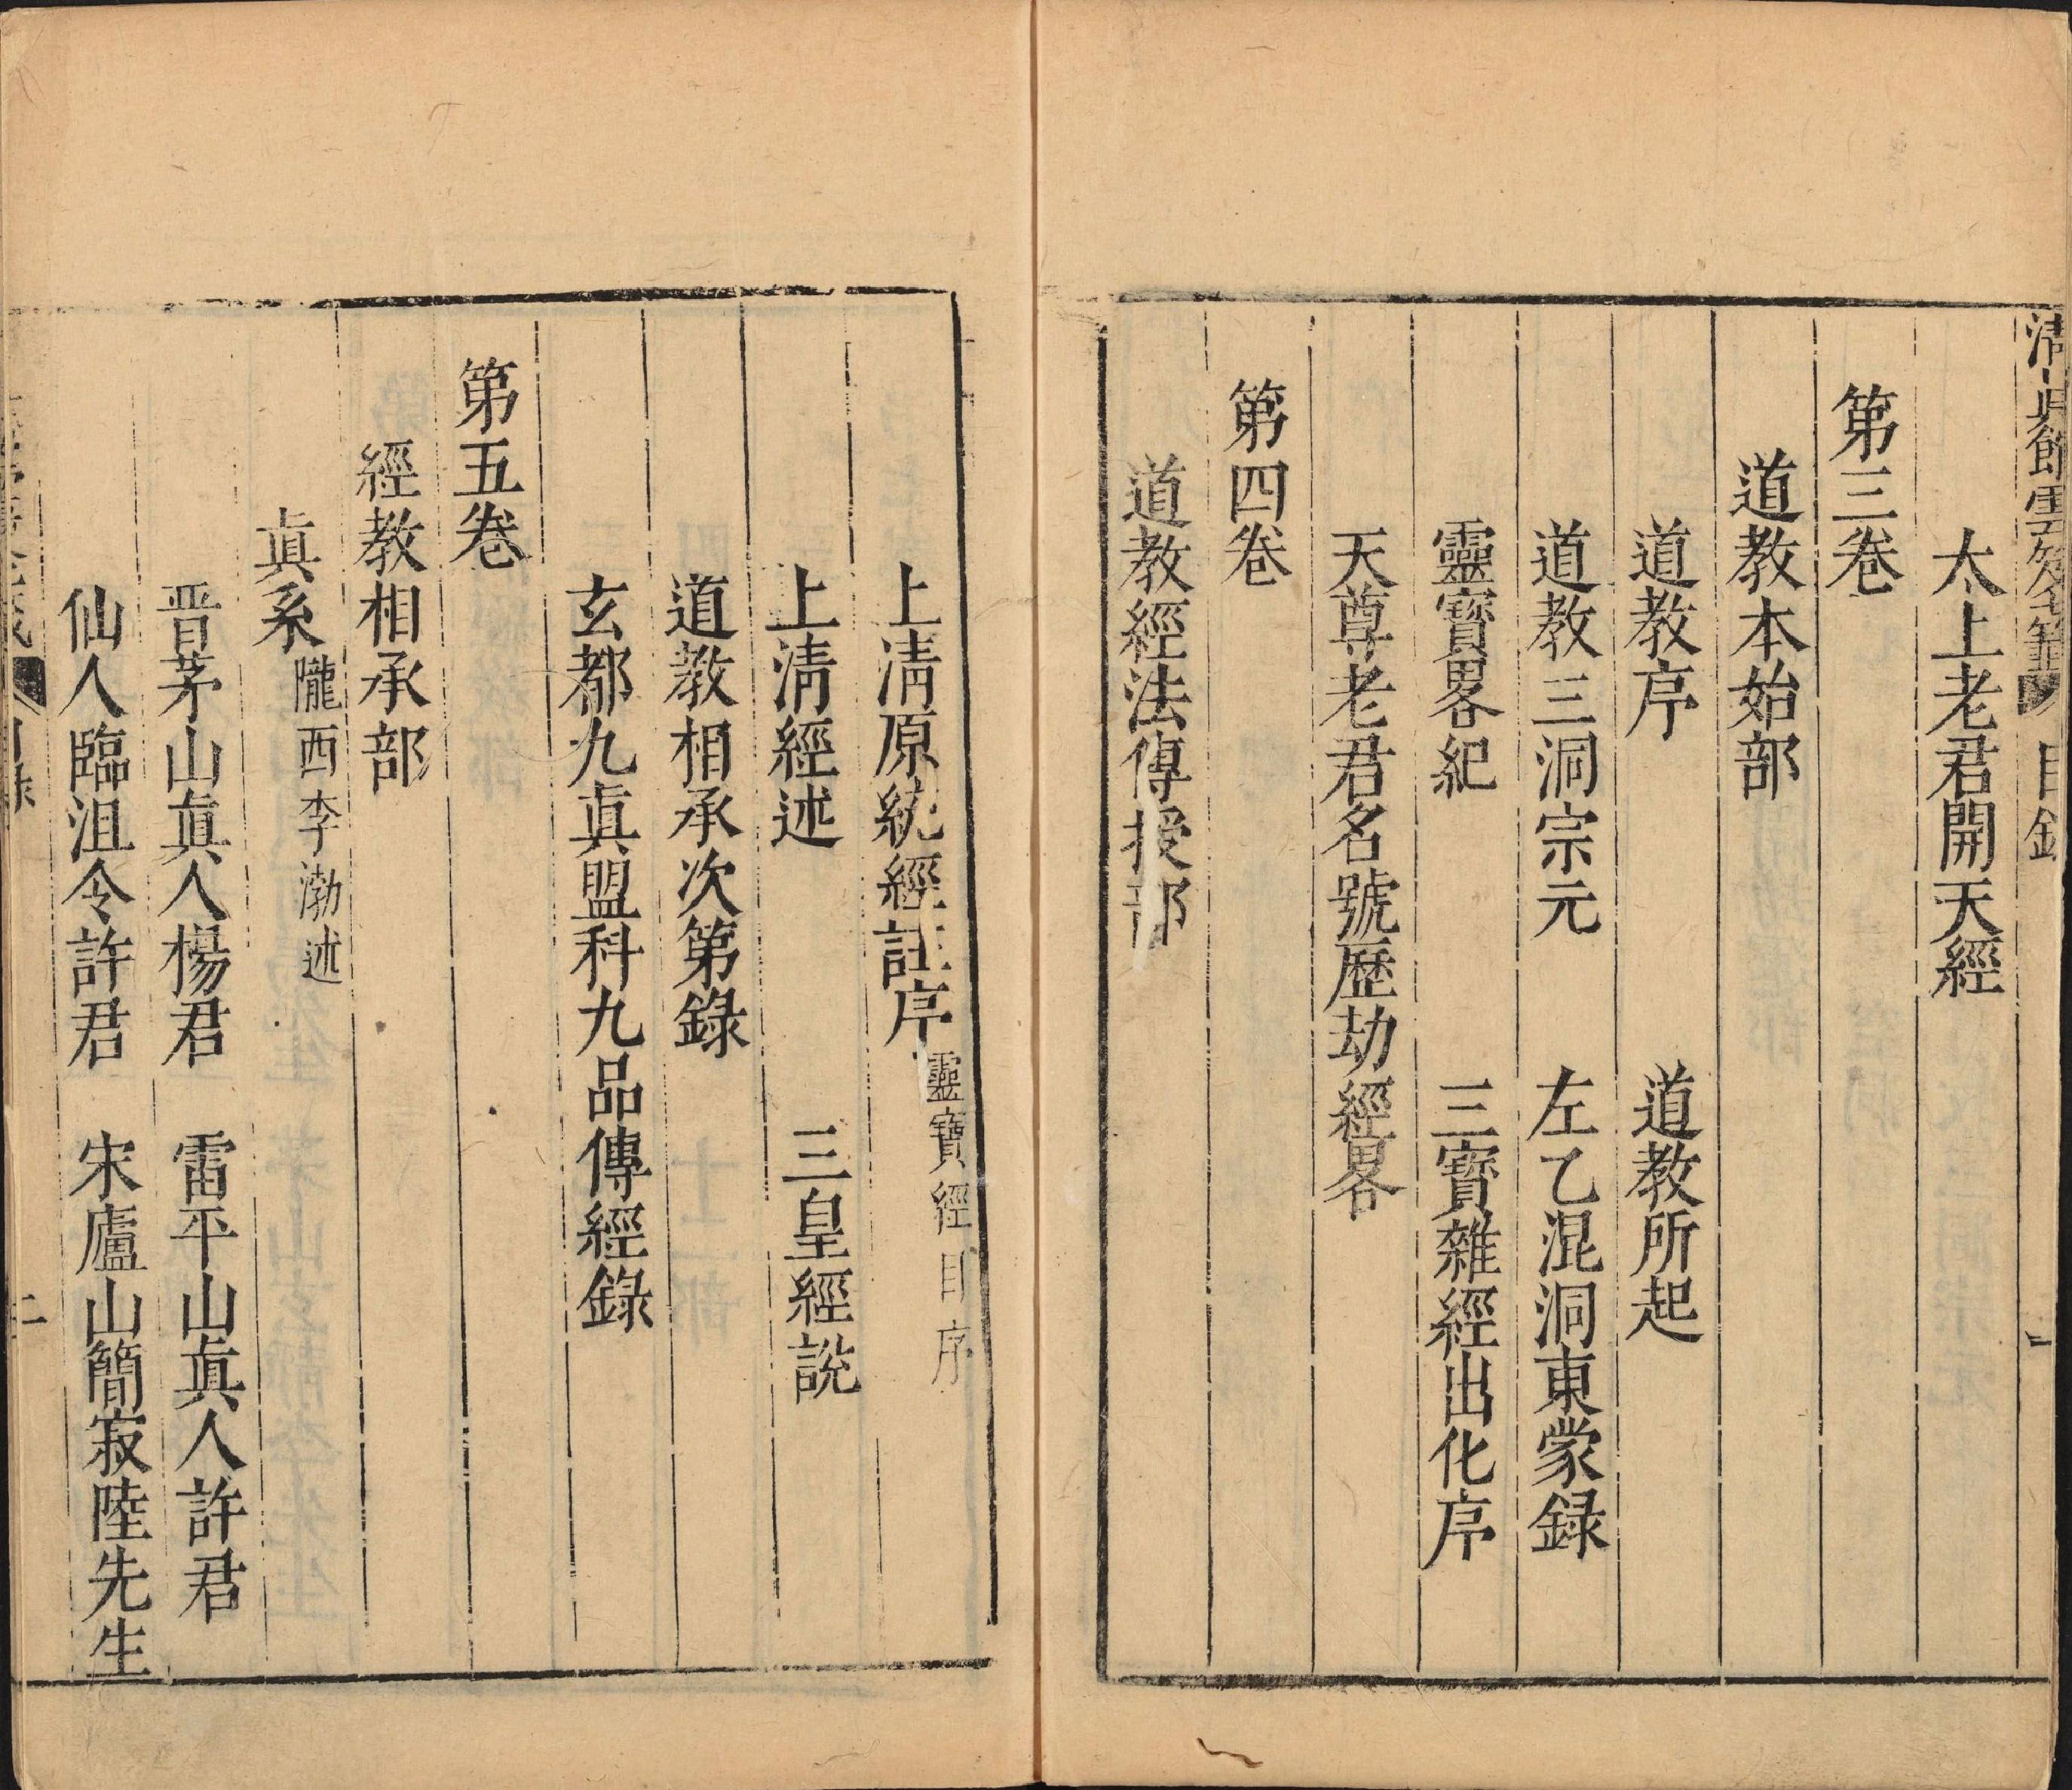 目錄
太上老君開天經
第三卷
道教本始部
道教序 道教所起
道教三洞宗元 左乙混洞東蒙録
靈寶畧紀 三寶雜經出化序
天尊老君名號歷劫經畧
第四卷
道教經法傳授部
上淸原統經註序 靈寶經目序
上淸經述 三皇經說
道教相承次第錄
玄都九眞盟科九品傳經錄
第五卷
經教相承部
眞系 隴西李渤述
晋茅山眞人楊君 雷平山眞人許君
仙人臨沮令許君 宋廬山簡寂陸先生
二